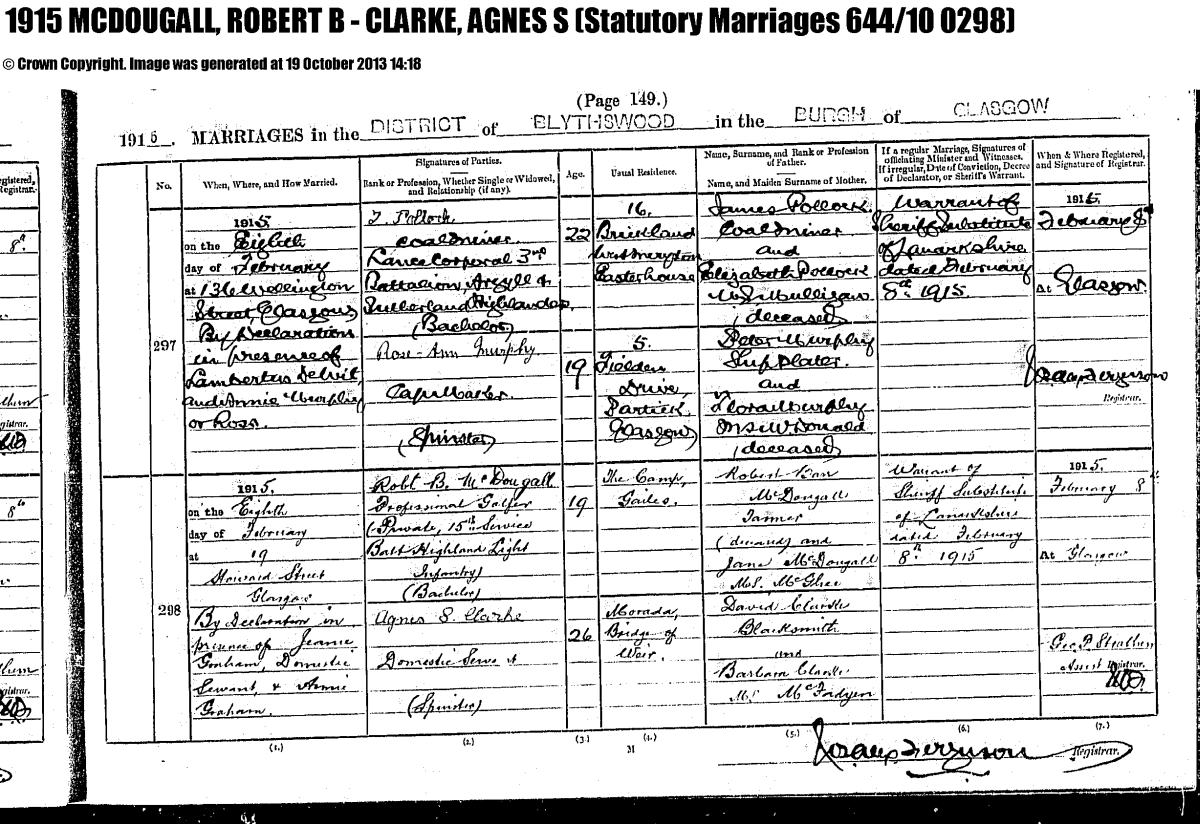 1915 MCDOUGALL, ROBERT B - CLARKE, AGNES S (Statutory Marriages 644/10 0298)
© Crown Copyright. Image was generated at 19 October 2013 14:18
(Page 149.)
1915. MARRIAGES in the DISTRICT of BLYTHSWOOD in the BURGH of GLASGOW
No.
When, Where, and How Married.
Signatures of Parties.
Rank or Profession, Whether Single or Widowed, and Relationship (if any).
Age.
Usual Residence.
Name, Surname, and Rank or Profession of Father.
Name, and Maiden Surname of Mother.
If a regular Marriage, Signatures of officiating Minister and Witnesses.
If irregular, Date of Conviction, Decree of Declarator, or Sheriff's Warrant.
When & Where Registered, and Signature of Registrar.
297
1915.
on the Eighth
day of February
at 136 Wellington
Street, Glasgow
By Declaration
in presence of
and Annie Murphy
or Ross.
Pollock
Coalminer
Lance Corporal 3rd
Battalion, Argyll &
Sutherland Highlanders
(Bachelor)
Rose-Ann Murphy
(Spinster)
22
19
16,
Easterhouse
5,
Drive,
Partick
Glasgow
James Pollock
Coalminer
and
Elizabeth Pollock
M.S. Mulligan
(deceased)
Peter Murphy
Ship Plater
and
Flora Murphy
M.S. McDonald
(deceased)
Warrant of
Sheriff Substitute
of Lanarkshire
dated February
8th 1915.
1915.
February 8th
At Glasgow
Ferguson
Registrar.
298
1915.
on the Eighth
day of February
at 19
Howard Street
Glasgow
By Declaration in
presence of Jeanie
Domestic
Servant, & Annie
Graham.
Robt B. McDougall
Professional Golfer
(Private, 15th Service
Batt Highland Light
Infantry)
(Bachelor)
Agnes S. Clarke
Domestic Servant
(Spinster)
19
26
The Camp,
Gailes.
Morada,
Bridge of
Weir.
Robert Barr
McDougall
(deceased) and
Jane McDougall
M.S. McGhee
David Clarke
Blacksmith
and
Barbara Clarke
M.S. McFadyen
Warrant of
Sheriff Substitute
of Lanarkshire
dated February
8th 1915
1915.
February 8th
At Glasgow
Geo. P. Strathern
Assist Registrar.
(1.) (2.) (3.) (4.) (5.) (6.) (7.)
M
Ferguson Registrar.